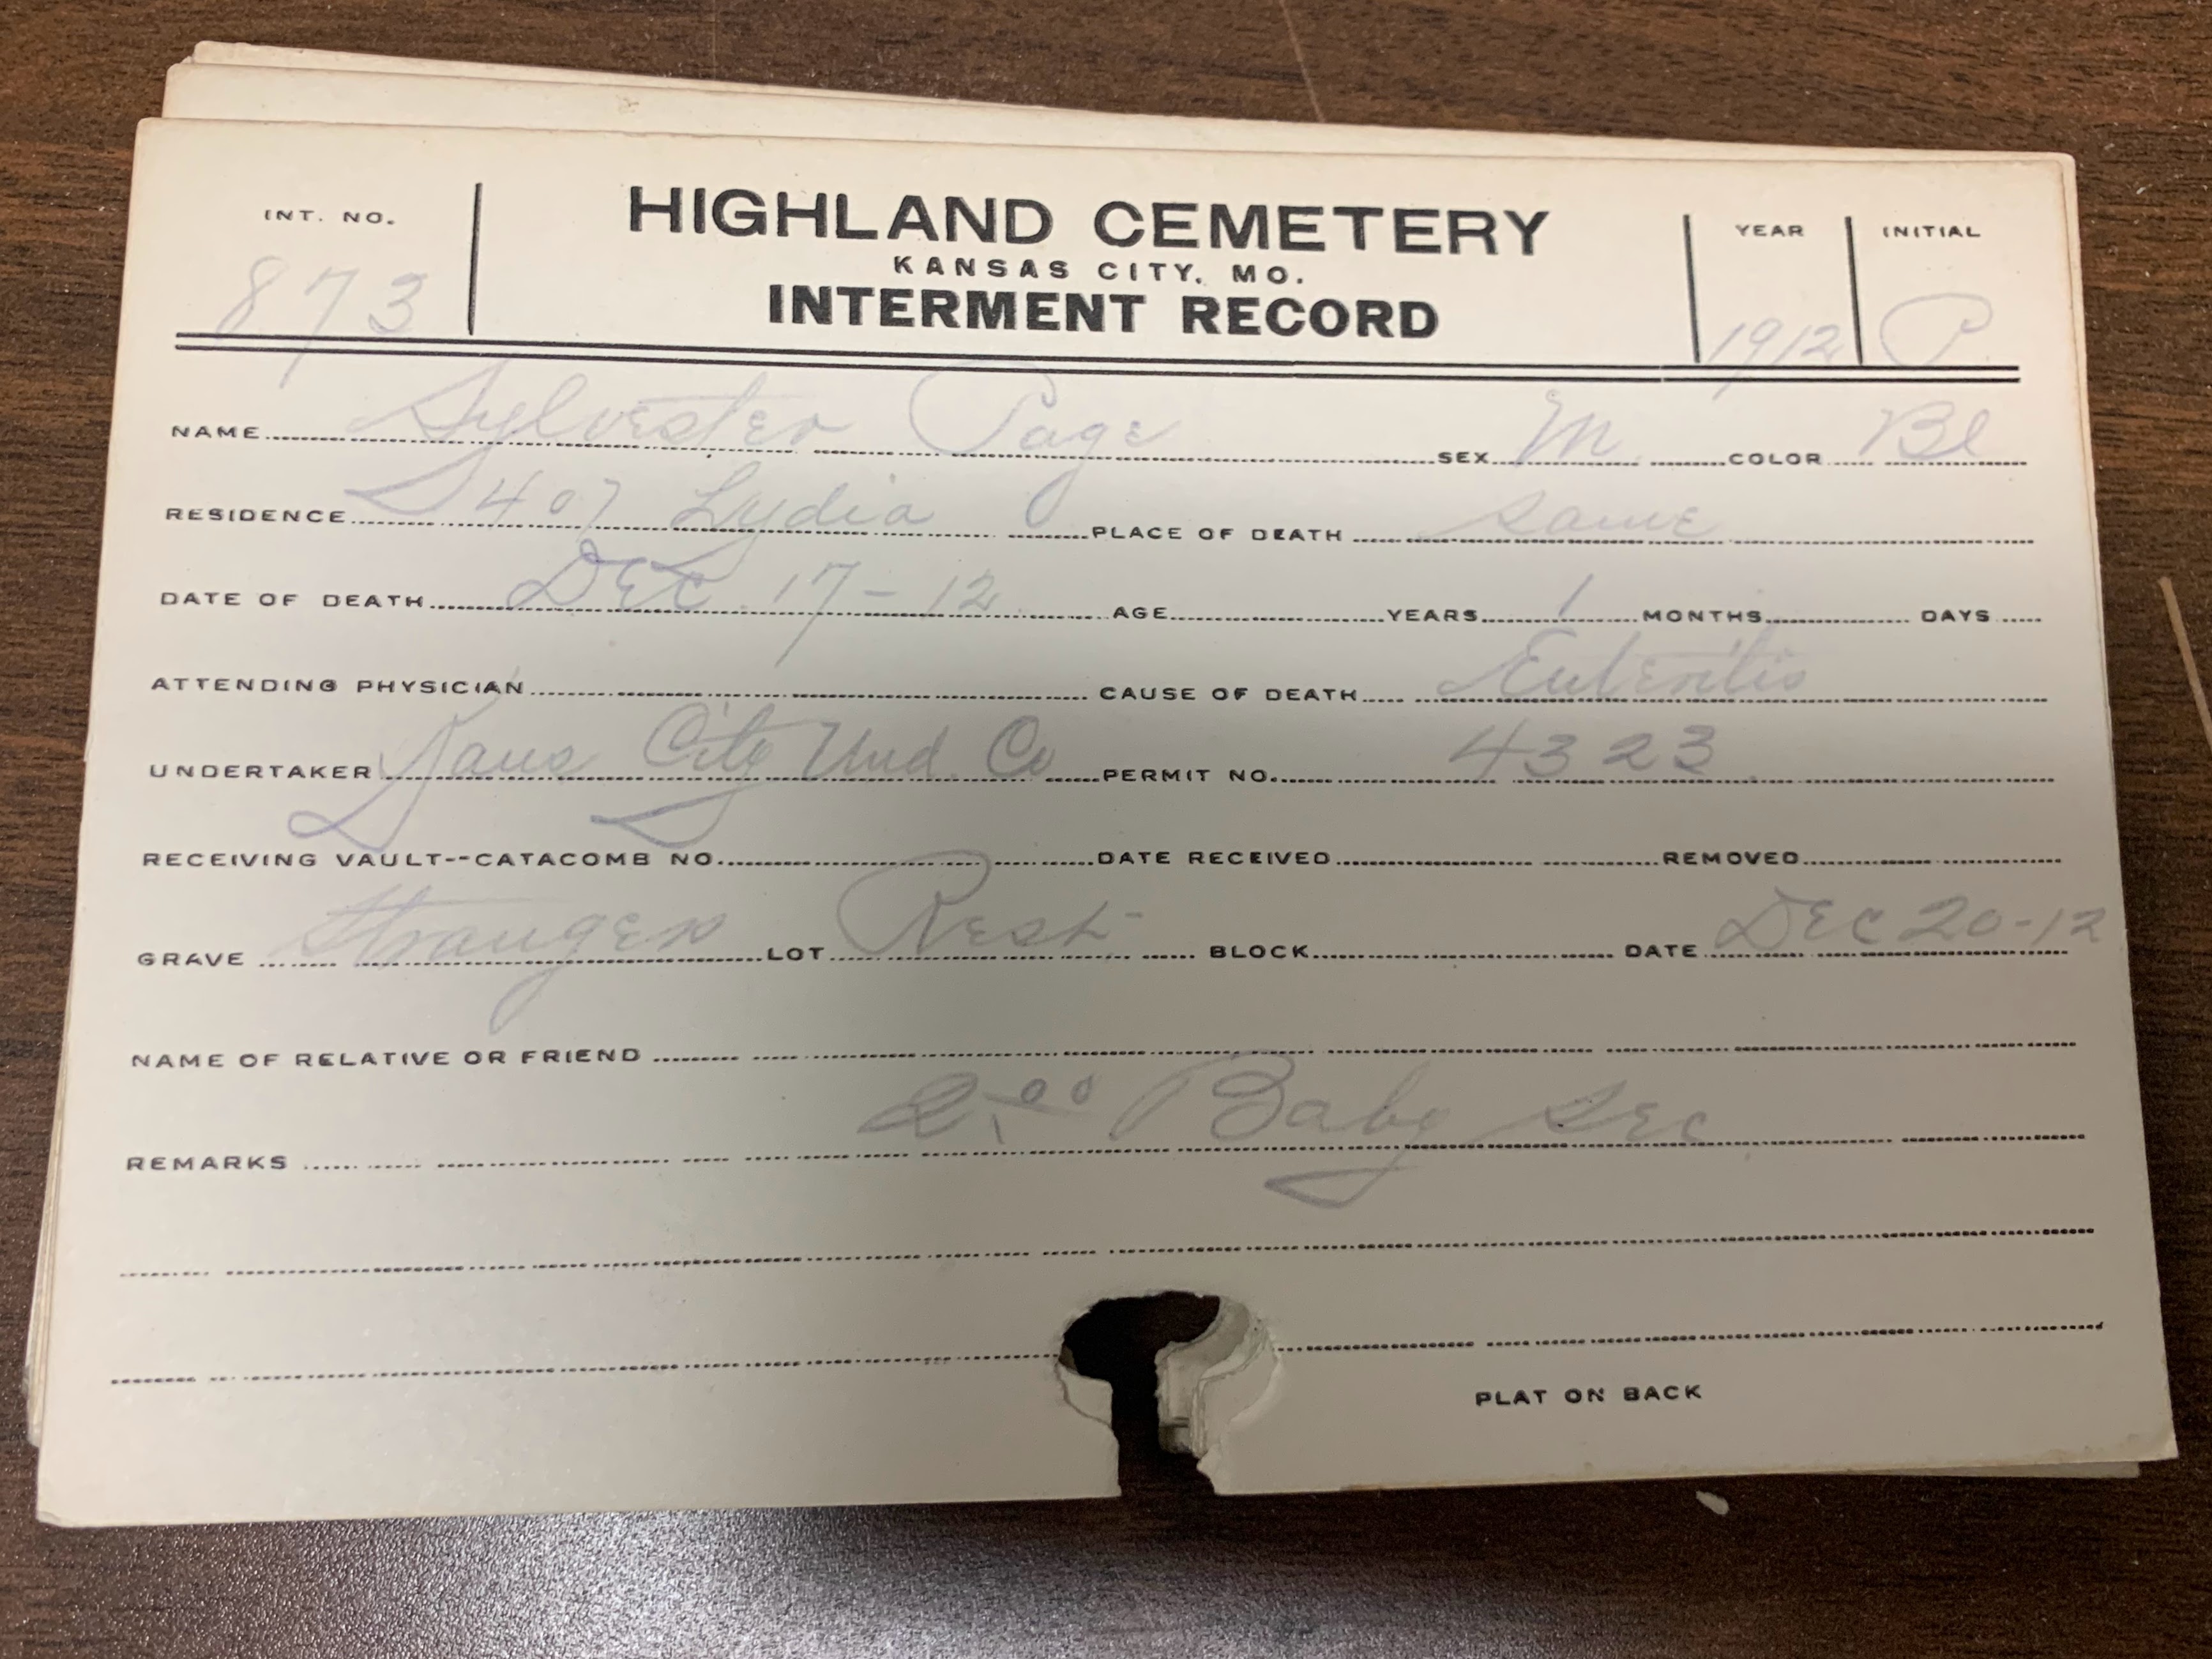 INT. NO. HIGHLAND CEMETERY YEAR INITIAL
KANSAS CITY, MO.
873 INTERMENT RECORD 1912 P.
NAME Sylvester Page SEX M COLOR Bl
RESIDENCE 407 Lydia PLACE OF DEATH same
DATE OF DEATH Dec. 17-12 AGE YEARS 1 MONTHS DAYS
ATTENDING PHYSICIAN CAUSE OF DEATH Enteritis
UNDERTAKER Kans City Und. Co PERMIT NO. 4323
RECEIVING VAULT--CATACOMB NO. DATE RECEIVED REMOVED
GRAVE Strangers LOT Rest BLOCK DATE Dec 20-12
NAME OF RELATIVE OR FRIEND
REMARKS 2.00 Baby Sec
PLAT ON BACK